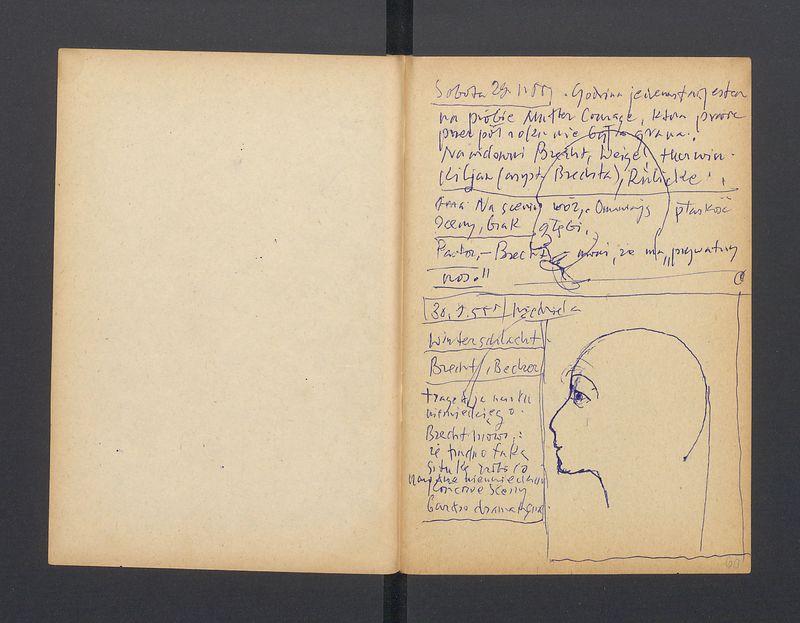 Sobota 29.1.55 . Godzina jedenasta jestem
na próbie Mutter Courage, która prawie
przez pół roku nie była grana.
Na widowni Brecht, Weigel,
Kiljan (asyst. Brechta), Rülicke.
Na scenie wóz. Omawiają płaskość
sceny, brak głębi.
Brecht mówi, że ma „prywatny
nos."
30.1.55 niedziela
Winterschlacht
Brecht, Becher
tragedia
niemieckiego.
Brecht mówi:
że trudno taką
sztukę
końcowe sceny
bardzo dramatyczne.
69